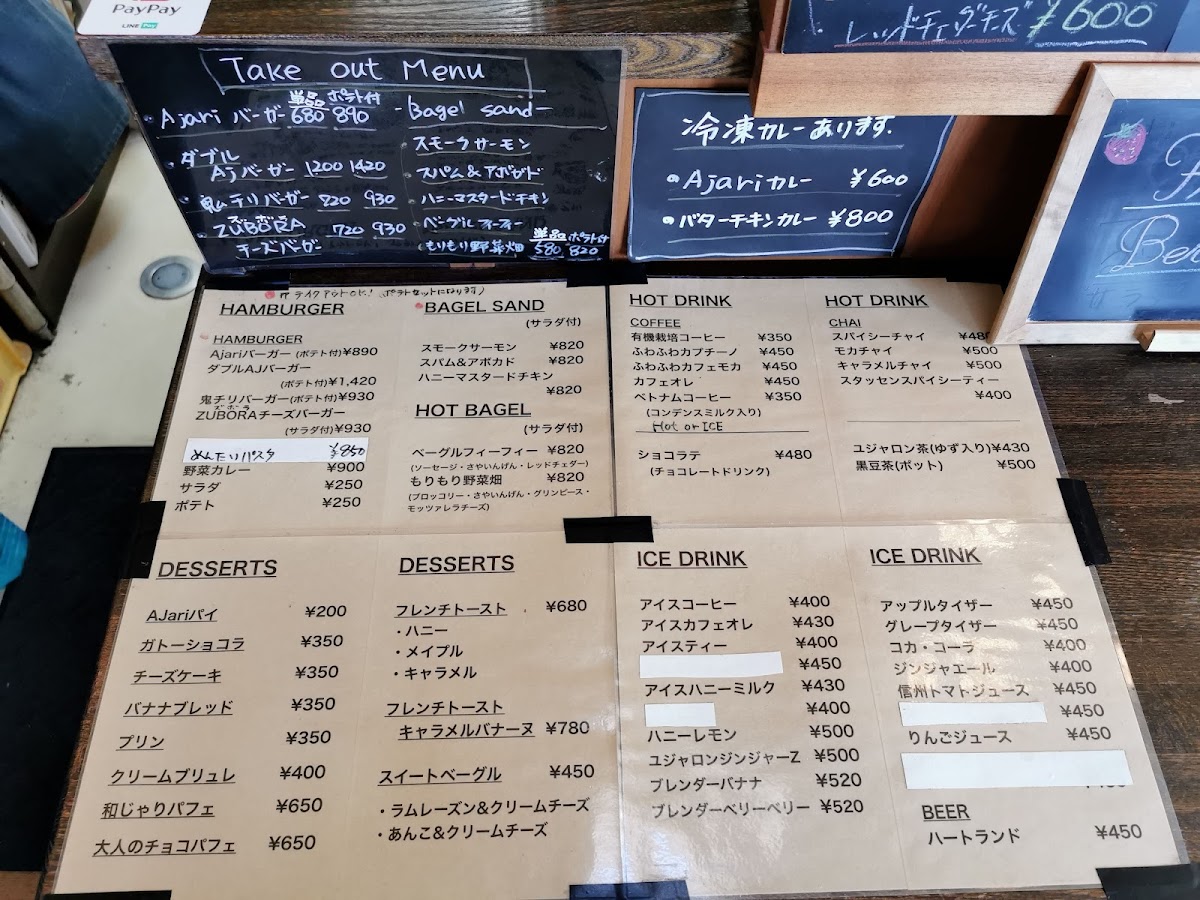 PayPay
LINE Pay
レッドチェダーチーズ ¥600
Take out Menu
単品 ポテト付
・Ajari バーガー 680 890
・ダブル
Aj バーガー 1200 1420
・鬼チリバーガー 820 930
ズボラ
・ZUBORA 720 930
チーズバーガー
-Bagel sand-
・スモークサーモン
・スパム&アボガド
・ハニーマスタードチキン
・ベーグルフィーフィー
単品 ポテト付
・もりもり野菜畑 580 820
冷凍カレーあります.
・Ajariカレー ¥600
・バターチキンカレー ¥800
Beer
テイクアウトOK! (ポテトセットになります)
HAMBURGER
HAMBURGER
Ajariバーガー (ポテト付)¥890
ダブルAJバーガー
(ポテト付)¥1,420
鬼チリバーガー(ポテト付)¥930
ズボラ
ZUBORAチーズバーガー
(サラダ付)¥930
めんたいパスタ ¥850
野菜カレー ¥900
サラダ ¥250
ポテト ¥250
BAGEL SAND
(サラダ付)
スモークサーモン ¥820
スパム&アボカド ¥820
ハニーマスタードチキン
¥820
HOT BAGEL
(サラダ付)
ベーグルフィーフィー ¥820
(ソーセージ・さやいんげん・レッドチェダー)
もりもり野菜畑 ¥820
(ブロッコリー・さやいんげん・グリンピース・
モッツァレラチーズ)
HOT DRINK
COFFEE
有機栽培コーヒー ¥350
ふわふわカプチーノ ¥450
ふわふわカフェモカ ¥450
カフェオレ ¥450
ベトナムコーヒー ¥350
(コンデンスミルク入り)
Hot or ICE
ショコラテ ¥480
(チョコレートドリンク)
HOT DRINK
CHAI
スパイシーチャイ ¥480
モカチャイ ¥500
キャラメルチャイ ¥500
スタッセンスパイシーティー
¥400
ユジャロン茶(ゆず入り)¥430
黒豆茶(ポット) ¥500
DESSERTS
AJariパイ ¥200
ガトーショコラ ¥350
チーズケーキ ¥350
バナナブレッド ¥350
プリン ¥350
クリームブリュレ ¥400
和じゃりパフェ ¥650
大人のチョコパフェ ¥650
DESSERTS
フレンチトースト ¥680
・ハニー
・メイプル
・キャラメル
フレンチトースト
キャラメルバナーヌ ¥780
スイートベーグル ¥450
・ラムレーズン&クリームチーズ
・あんこ&クリームチーズ
ICE DRINK
アイスコーヒー ¥400
アイスカフェオレ ¥430
アイスティー ¥400
¥450
アイスハニーミルク ¥430
¥400
ハニーレモン ¥500
ユジャロンジンジャーZ ¥500
ブレンダーバナナ ¥520
ブレンダーベリーベリー ¥520
ICE DRINK
アップルタイザー ¥450
グレープタイザー ¥450
コカ・コーラ ¥400
ジンジャエール ¥400
信州トマトジュース ¥450
¥450
りんごジュース ¥450
BEER
ハートランド ¥450